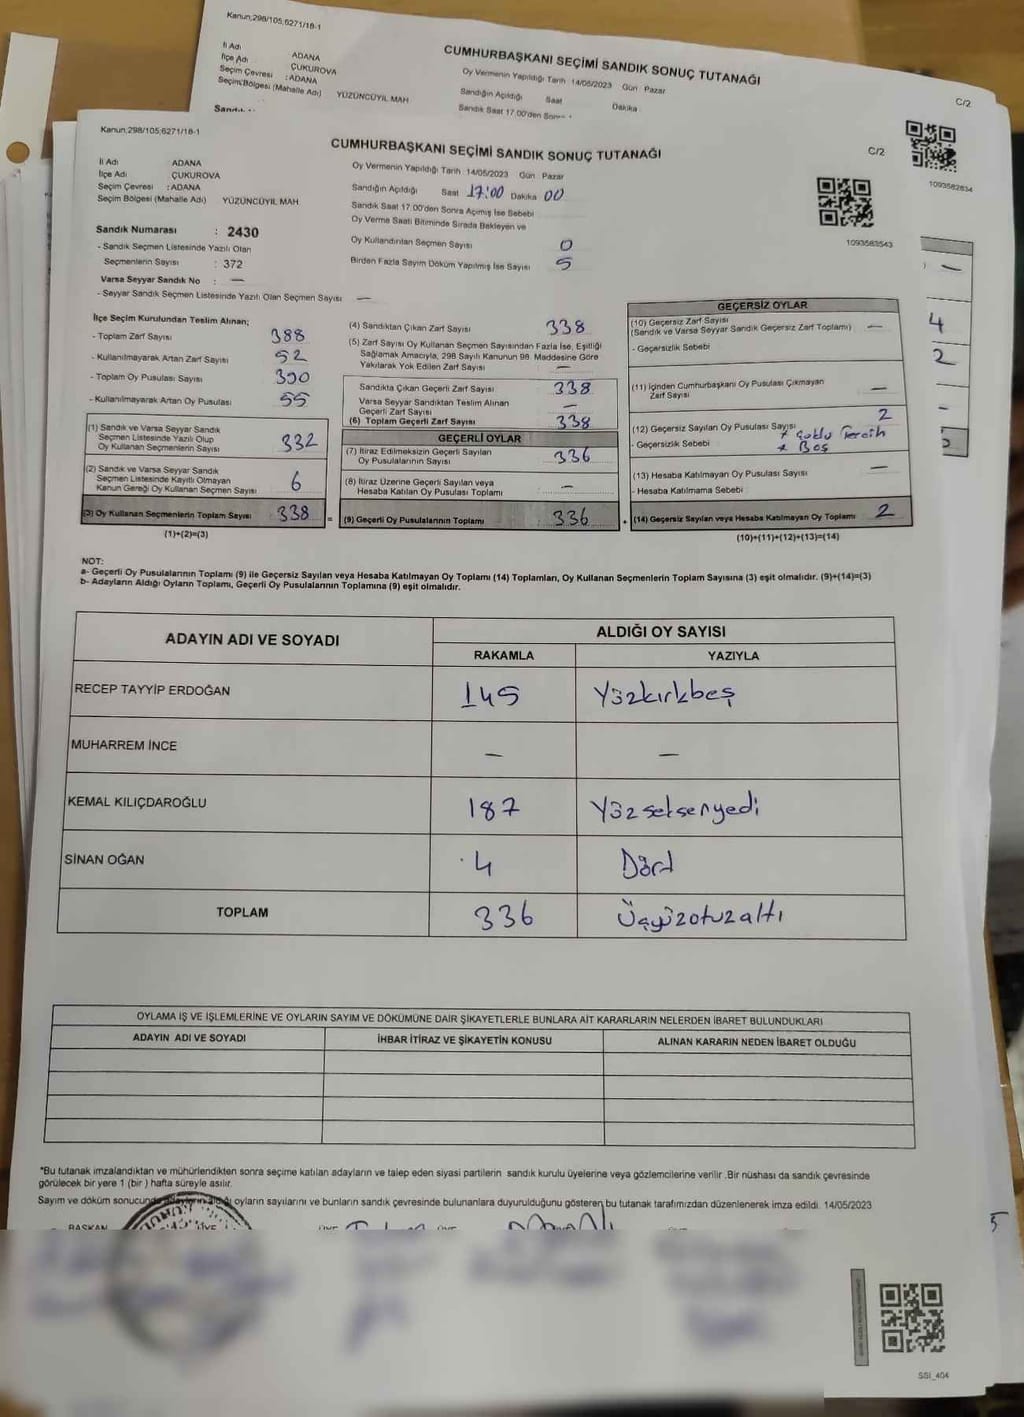 Kanun;298/105,6271/18-1
CUMHURBAŞKANI SEÇİMİ SANDIK SONUÇ TUTANAĞI
C/2
İl Adı ADANA
İlçe Adı ÇUKUROVA
Seçim Çevresi :ADANA
Seçim Bölgesi (Mahalle Adı) YÜZÜNCÜYIL MAH
Oy Vermenin Yapıldığı Tarih 14/05/2023 Gün Pazar
Sandığın Açıldığı Saat Dakika
Sandık Saat 17.00'den
1093582834
Kanun;298/105,6271/18-1
CUMHURBAŞKANI SEÇİMİ SANDIK SONUÇ TUTANAĞI
C/2
İl Adı ADANA
İlçe Adı ÇUKUROVA
Seçim Çevresi :ADANA
Seçim Bölgesi (Mahalle Adı) YÜZÜNCÜYIL MAH
Oy Vermenin Yapıldığı Tarih 14/05/2023 Gün Pazar
Sandığın Açıldığı Saat 17:00 Dakika 00
Sandık Saat 17.00'den Sonra Açımış İse Sebebi
Oy Verme Saati Bitiminde Sırada Bekleyen ve
Oy Kullandırılan Seçmen Sayısı 0
Birden Fazla Sayım Döküm Yapılmış İse Sayısı 5
1093583543
Sandık Numarası : 2430
- Sandık Seçmen Listesinde Yazılı Olan
Seçmenlerin Sayısı : 372
Varsa Seyyar Sandık No : —
- Seyyar Sandık Seçmen Listesinde Yazılı Olan Seçmen Sayısı —
İlçe Seçim Kurulundan Teslim Alınan;
- Toplam Zarf Sayısı 388
- Kullanılmayarak Artan Zarf Sayısı 52
- Toplam Oy Pusulası Sayısı 390
- Kullanılmayarak Artan Oy Pusulası 55
(1) Sandık ve Varsa Seyyar Sandık
Seçmen Listesinde Yazılı Olup
Oy Kullanan Seçmenlerin Sayısı 332
(2) Sandık ve Varsa Seyyar Sandık
Seçmen Listesinde Kayıtlı Olmayan
Kanun Gereği Oy Kullanan Seçmen Sayısı 6
(3) Oy Kullanan Seçmenlerin Toplam Sayısı 338
(1)+(2)=(3)
(4) Sandıktan Çıkan Zarf Sayısı 338
(5) Zarf Sayısı Oy Kullanan Seçmen Sayısından Fazla İse, Eşitliği
Sağlamak Amacıyla, 298 Sayılı Kanunun 98. Maddesine Göre
Yakılarak Yok Edilen Zarf Sayısı —
Sandıkta Çıkan Geçerli Zarf Sayısı 338
Varsa Seyyar Sandıktan Teslim Alınan
Geçerli Zarf Sayısı —
(6) Toplam Geçerli Zarf Sayısı 338
GEÇERLİ OYLAR
(7) İtiraz Edilmeksizin Geçerli Sayılan
Oy Pusulalarının Sayısı 336
(8) İtiraz Üzerine Geçerli Sayılan veya
Hesaba Katılan Oy Pusulası Toplamı —
= (9) Geçerli Oy Pusulalarının Toplamı 336
GEÇERSİZ OYLAR
(10) Geçersiz Zarf Sayısı
(Sandık ve Varsa Seyyar Sandık Geçersiz Zarf Toplamı) —
- Geçersizlik Sebebi
(11) İçinden Cumhurbaşkanı Oy Pusulası Çıkmayan
Zarf Sayısı —
(12) Geçersiz Sayılan Oy Pusulası Sayısı 2
- Geçersizlik Sebebi * Çoklu Tercih
* Boş
(13) Hesaba Katılmayan Oy Pusulası Sayısı —
- Hesaba Katılmama Sebebi
+ (14) Geçersiz Sayılan veya Hesaba Katılmayan Oy Toplamı 2
(10)+(11)+(12)+(13)=(14)
—
4
2
-
NOT:
a- Geçerli Oy Pusulalarının Toplamı (9) ile Geçersiz Sayılan veya Hesaba Katılmayan Oy Toplamı (14) Toplamları, Oy Kullanan Seçmenlerin Toplam Sayısına (3) eşit olmalıdır. (9)+(14)=(3)
b- Adayların Aldığı Oyların Toplamı, Geçerli Oy Pusulalarının Toplamına (9) eşit olmalıdır.
ADAYIN ADI VE SOYADI ALDIĞI OY SAYISI
RAKAMLA YAZIYLA
RECEP TAYYİP ERDOĞAN 145 Yüzkırkbeş
MUHARREM İNCE — —
KEMAL KILIÇDAROĞLU 187 Yüzseksenyedi
SİNAN OĞAN 4 Dört
TOPLAM 336 Üçyüzotuzaltı
OYLAMA İŞ VE İŞLEMLERİNE VE OYLARIN SAYIM VE DÖKÜMÜNE DAİR ŞİKAYETLERLE BUNLARA AİT KARARLARIN NELERDEN İBARET BULUNDUKLARI
ADAYIN ADI VE SOYADI İHBAR İTİRAZ VE ŞİKAYETİN KONUSU ALINAN KARARIN NEDEN İBARET OLDUĞU
*Bu tutanak imzalandıktan ve mühürlendikten sonra seçime katılan adayların ve talep eden siyasi partilerin sandık kurulu üyelerine veya gözlemcilerine verilir. Bir nüshası da sandık çevresinde
görülecek bir yere 1 (bir) hafta süreyle asılır.
Sayım ve döküm sonucunda adayların aldığı oyların sayılarını ve bunların sandık çevresinde bulunanlara duyurulduğunu gösteren bu tutanak tarafımızdan düzenlenerek imza edildi. 14/05/2023
BAŞKAN
5
SSI_404